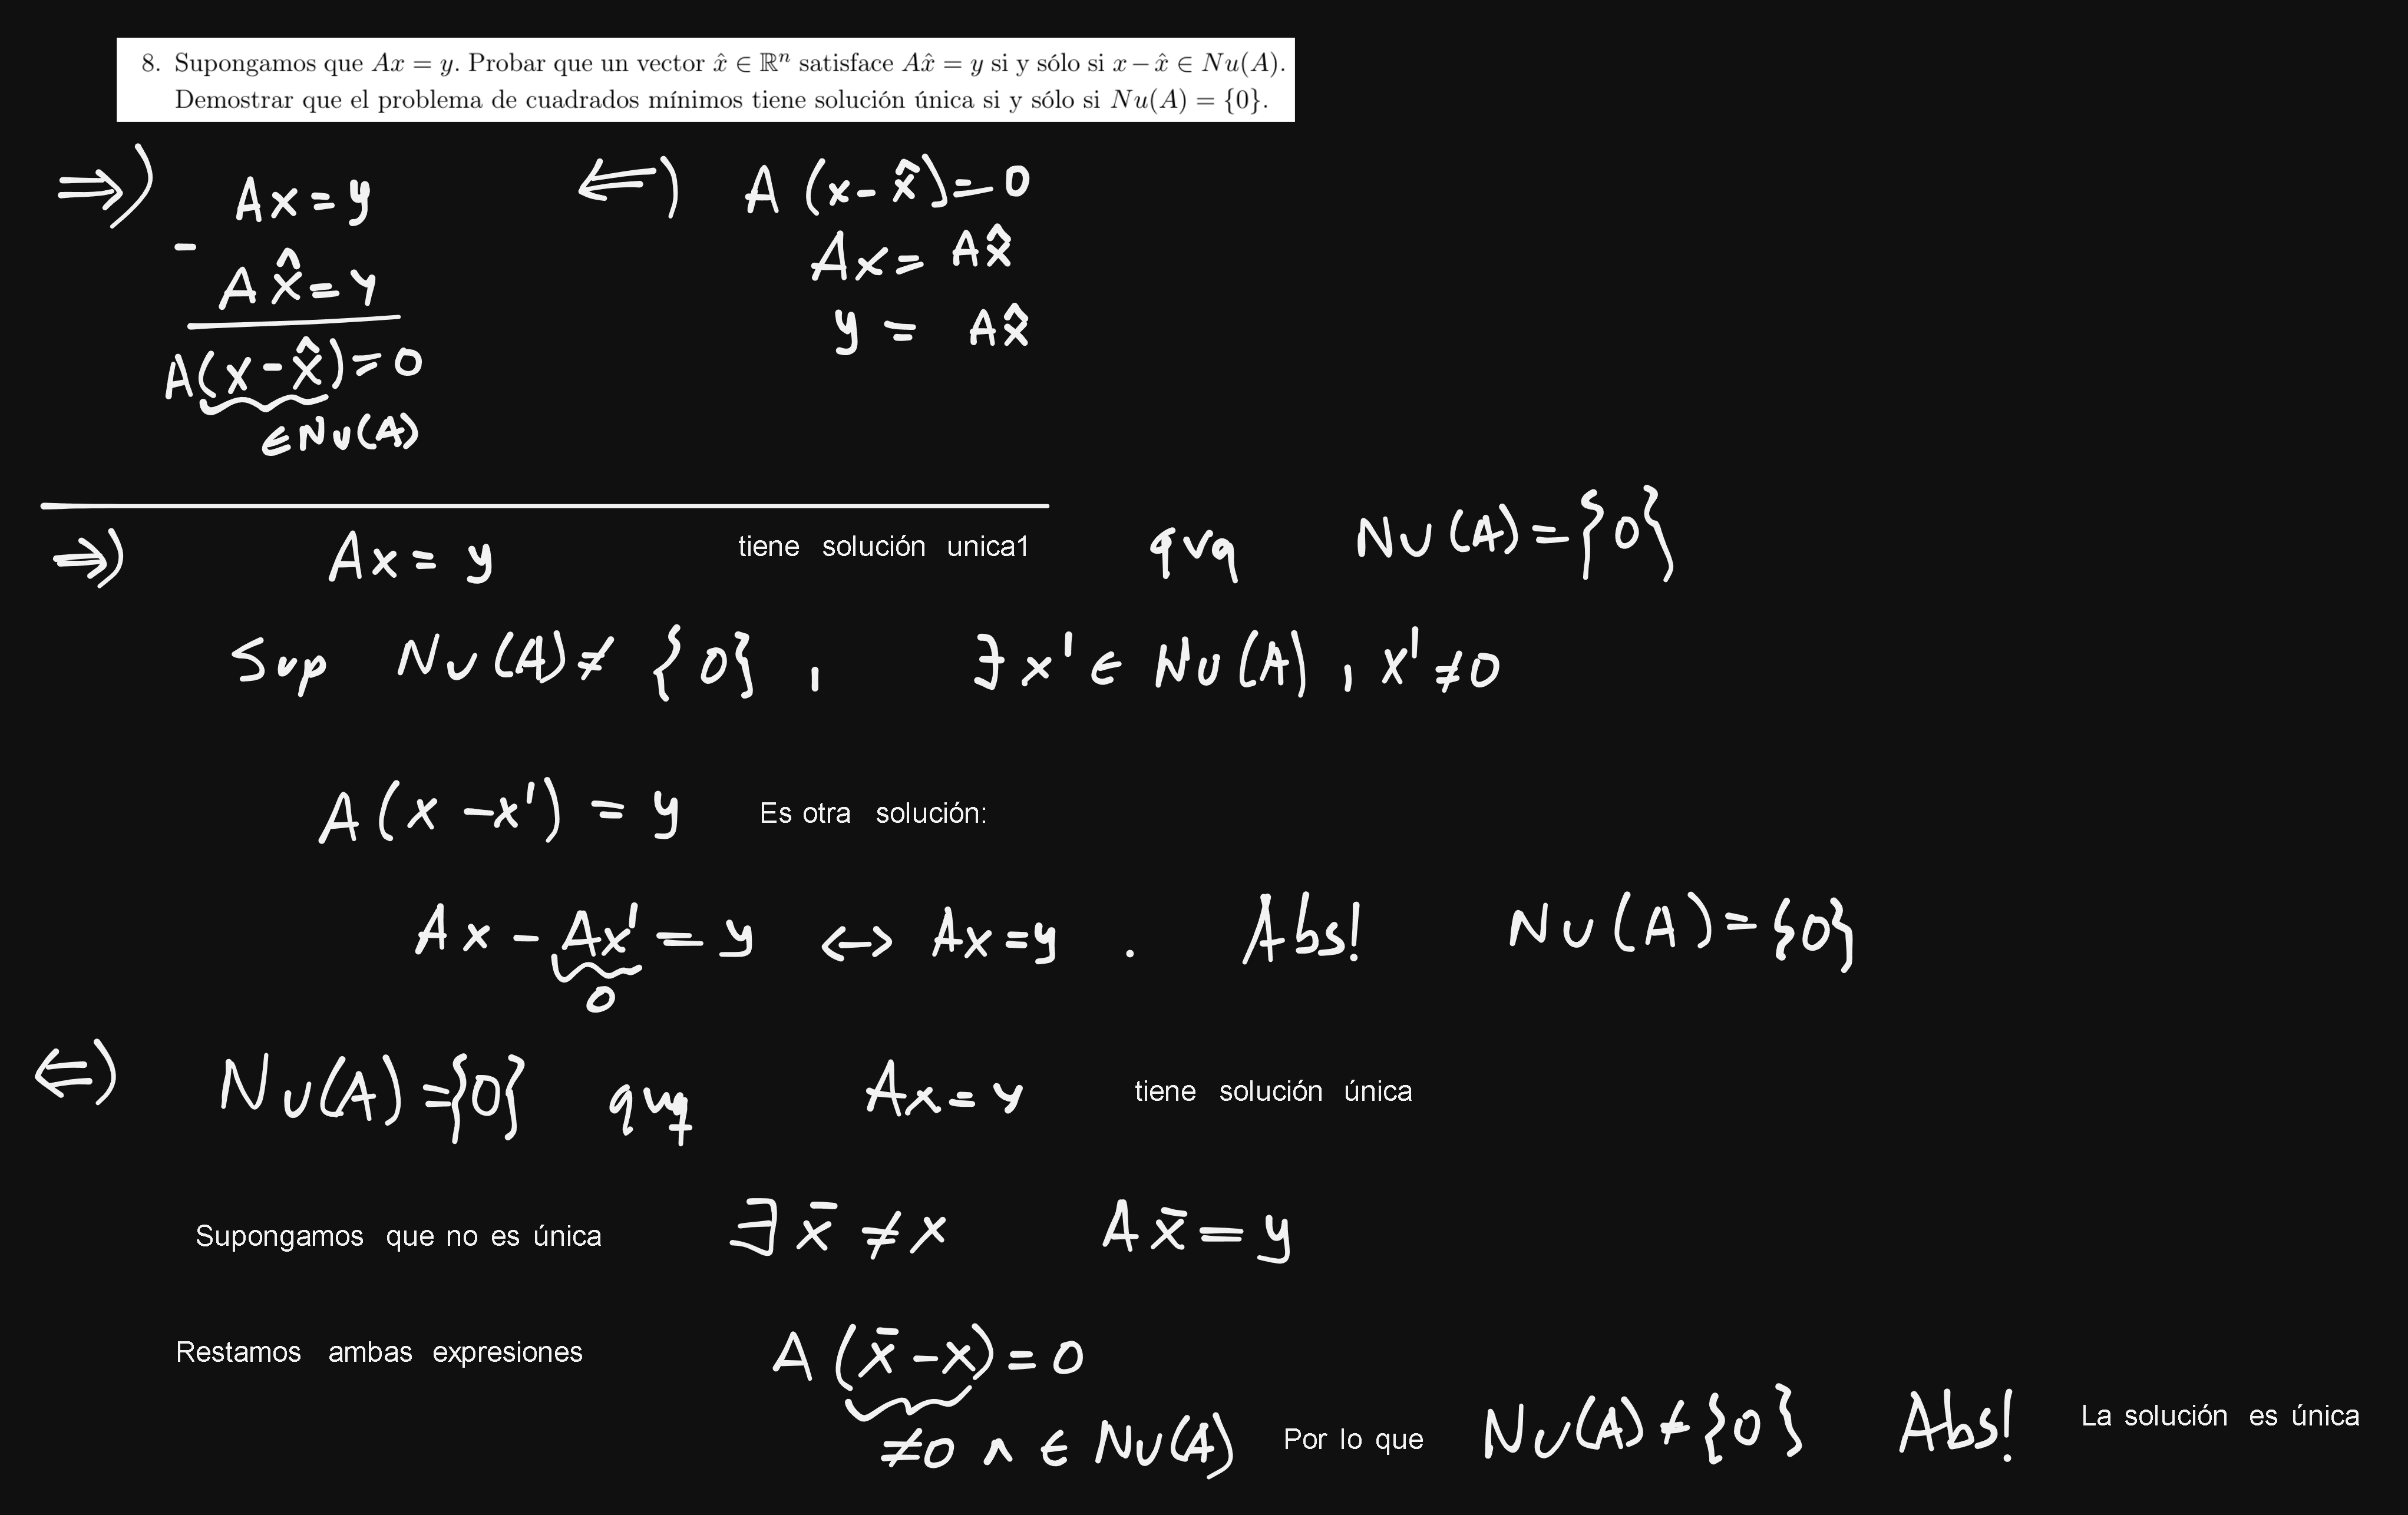 8. Supongamos que Ax = y. Probar que un vector x̂ ∈ ℝⁿ satisface Ax̂ = y si y sólo si x − x̂ ∈ Nu(A).
Demostrar que el problema de cuadrados mínimos tiene solución única si y sólo si Nu(A) = {0}.
⇒) Ax = y
- Ax̂ = y
A(x - x̂) = 0
∈ Nu(A)
⇐) A(x - x̂) = 0
Ax = Ax̂
y = Ax̂
⇒) Ax = y tiene solución unica1 qvq Nu(A) = {0}
Sup Nu(A) ≠ {0}, ∃ x' ∈ Nu(A), x' ≠ 0
A(x - x') = y Es otra solución:
Ax - Ax' = y ↔ Ax = y . Abs! Nu(A) = {0}
0
⇐) Nu(A) = {0} qvq Ax = y tiene solución única
Supongamos que no es única ∃ x̄ ≠ x Ax̄ = y
Restamos ambas expresiones A(x̄ - x) = 0
≠0 ∧ ∈ Nu(A) Por lo que Nu(A) ≠ {0} Abs! La solución es única